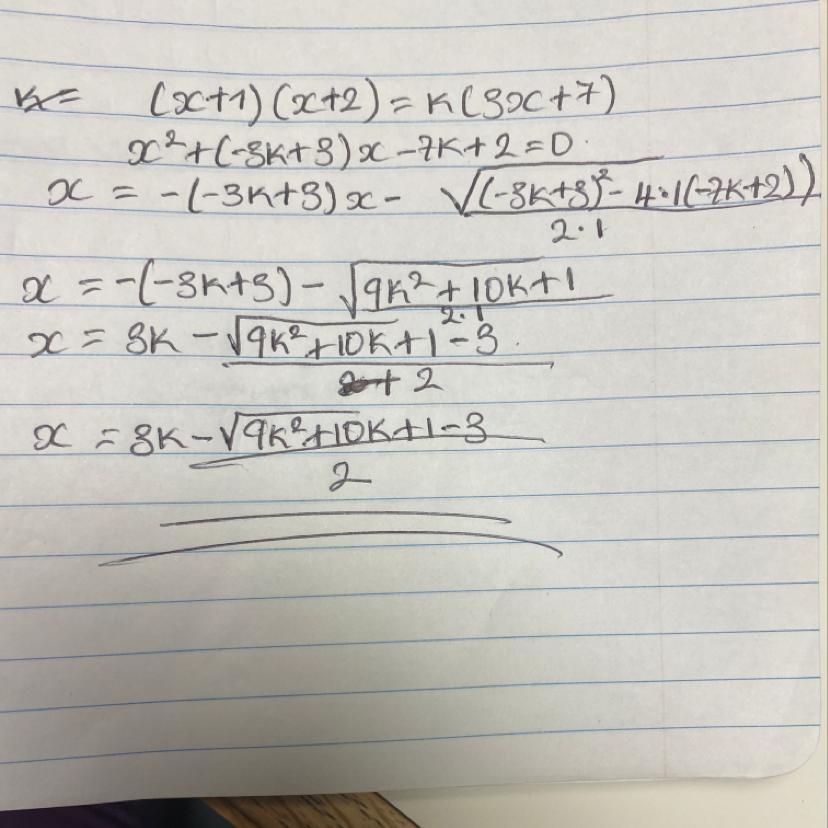 (x+1)(x+2) = k(3x+7)
x²+(-3k+3)x-7k+2=0
x = -(-3k+3)x - √((-3k+3)²-4·1(-7k+2))
2·1
x = -(-3k+3) - √9k²+10k+1
2·1
x = 3k - √9k²+10k+1 - 3
2
x = 3k-√9k²+10k+1-3
2